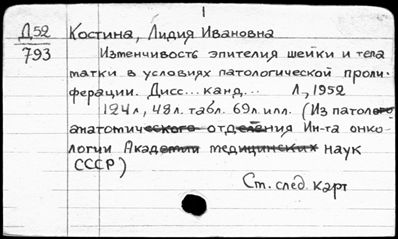 1
Д52
793
Костина, Лидия Ивановна
Изменчивость эпителия шейки и тела
матки в условиях патологической проли-
ферации. Дисс... канд... Л., 1952
124л, 48л. табл. 69л. илл. (Из патолого-
анатомического отделения Ин-та онко-
логии Академии медицинских наук
СССР)
См. след карт